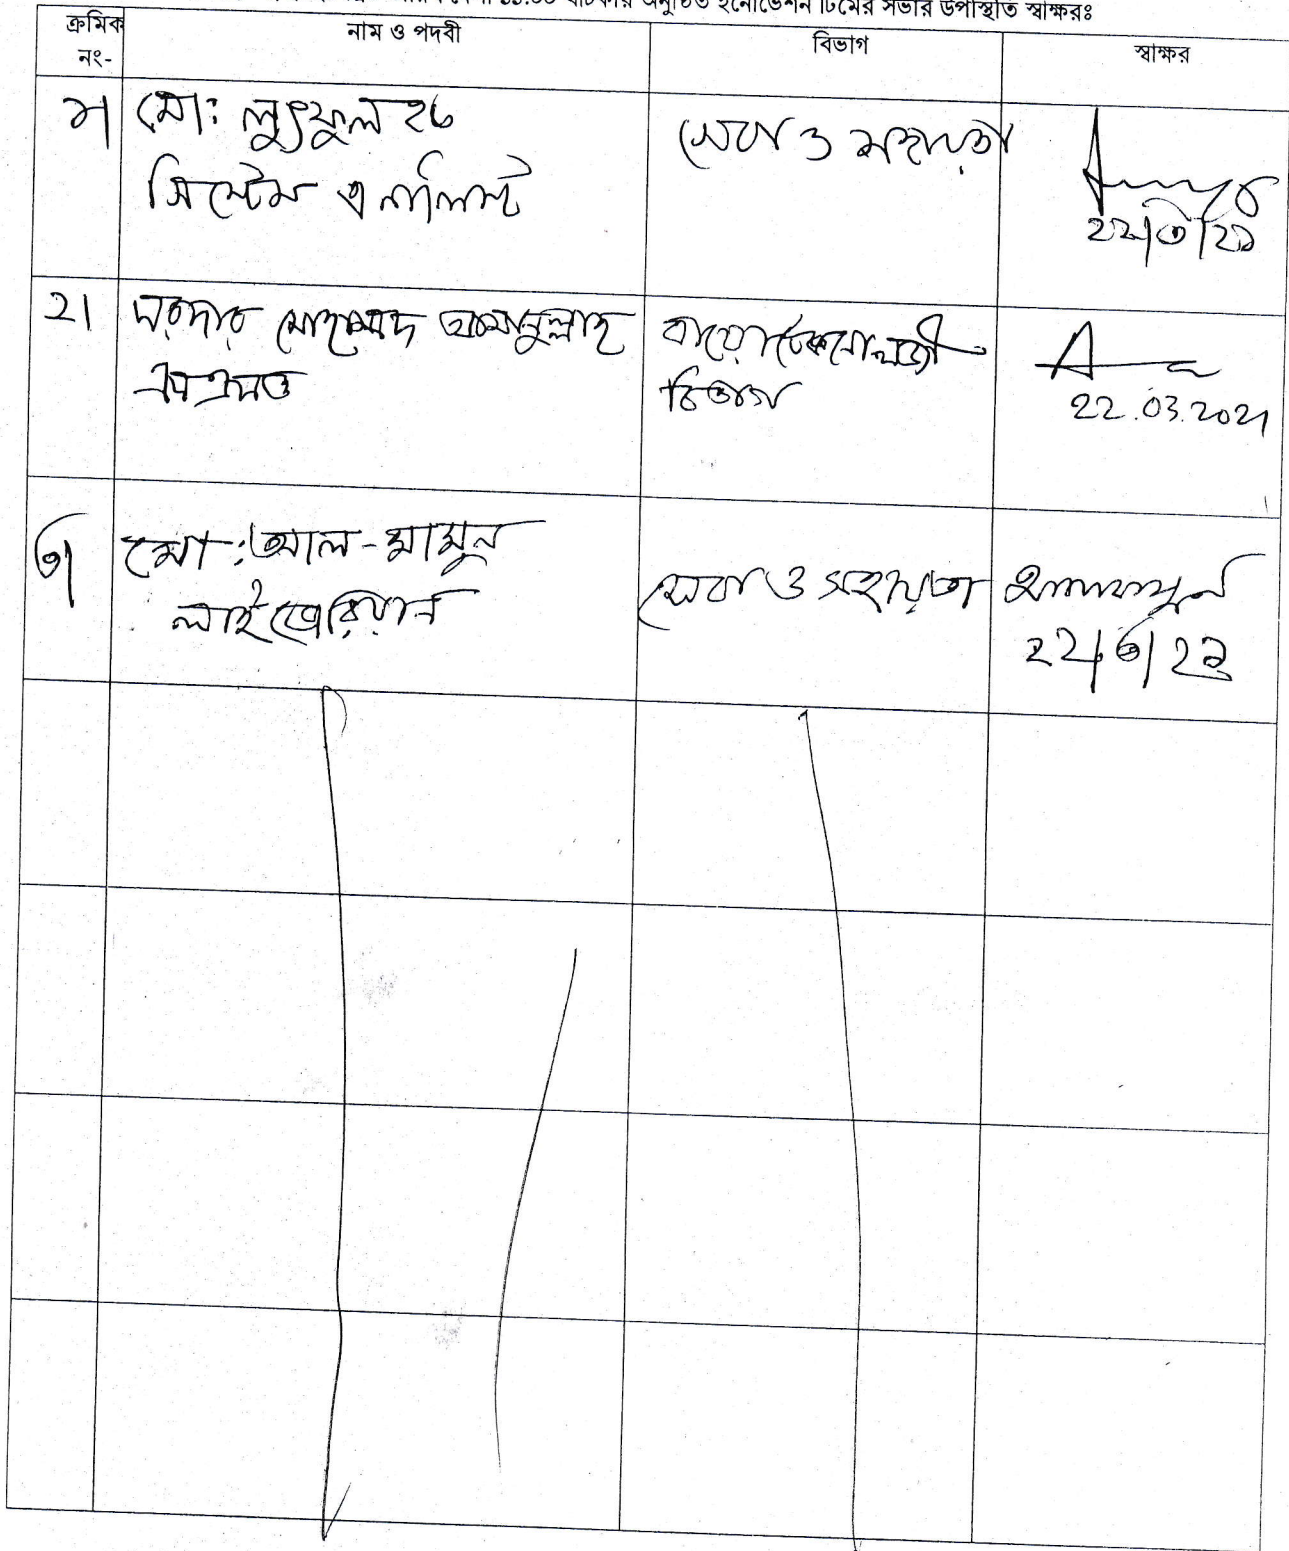 ১১.০০ ঘটিকায় অনুষ্ঠিত ইনোভেশন টিমের সভার উপস্থিতি স্বাক্ষরঃ
ক্রমিক নং- নাম ও পদবী বিভাগ স্বাক্ষর
১। মো: লুৎফুল হক সেবা ও সহায়তা
সিস্টেম এনালিস্ট
২২/৩/২১
২। সরদার মোহাম্মদ আমানুল্লাহ বায়োটেকনোলজী
এসএসও বিভাগ
22.03.2021
৩। মো: আল-মামুন
লাইব্রেরিয়ান সেবা ও সহায়তা আলমামুন
২২/৩/২১